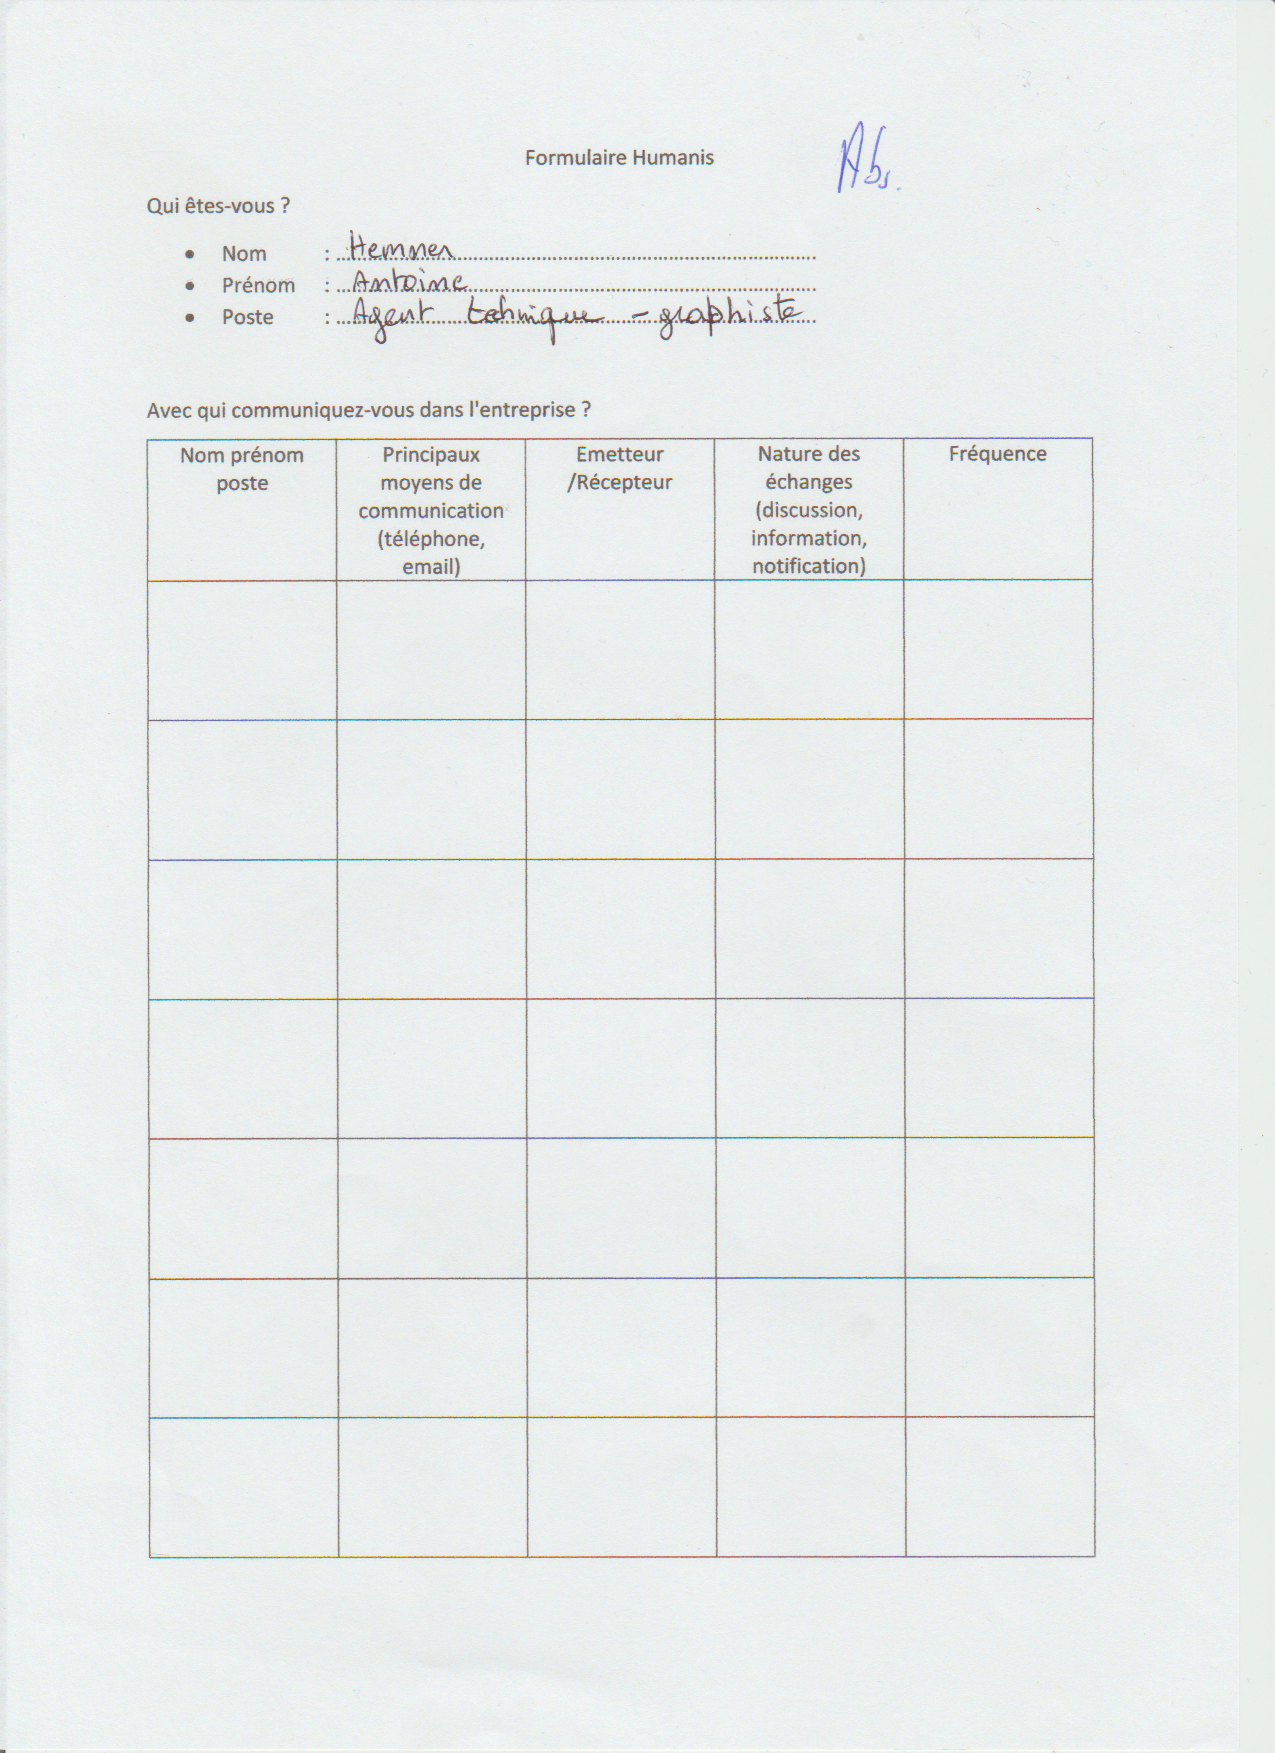 Formulaire Humanis
Abs.
Qui êtes-vous ?
• Nom : Hemmer
• Prénom : Antoine
• Poste : Agent tehnique - graphiste
Avec qui communiquez-vous dans l'entreprise ?
Nom prénom
poste
Principaux
moyens de
communication
(téléphone,
email)
Emetteur
/Récepteur
Nature des
échanges
(discussion,
information,
notification)
Fréquence